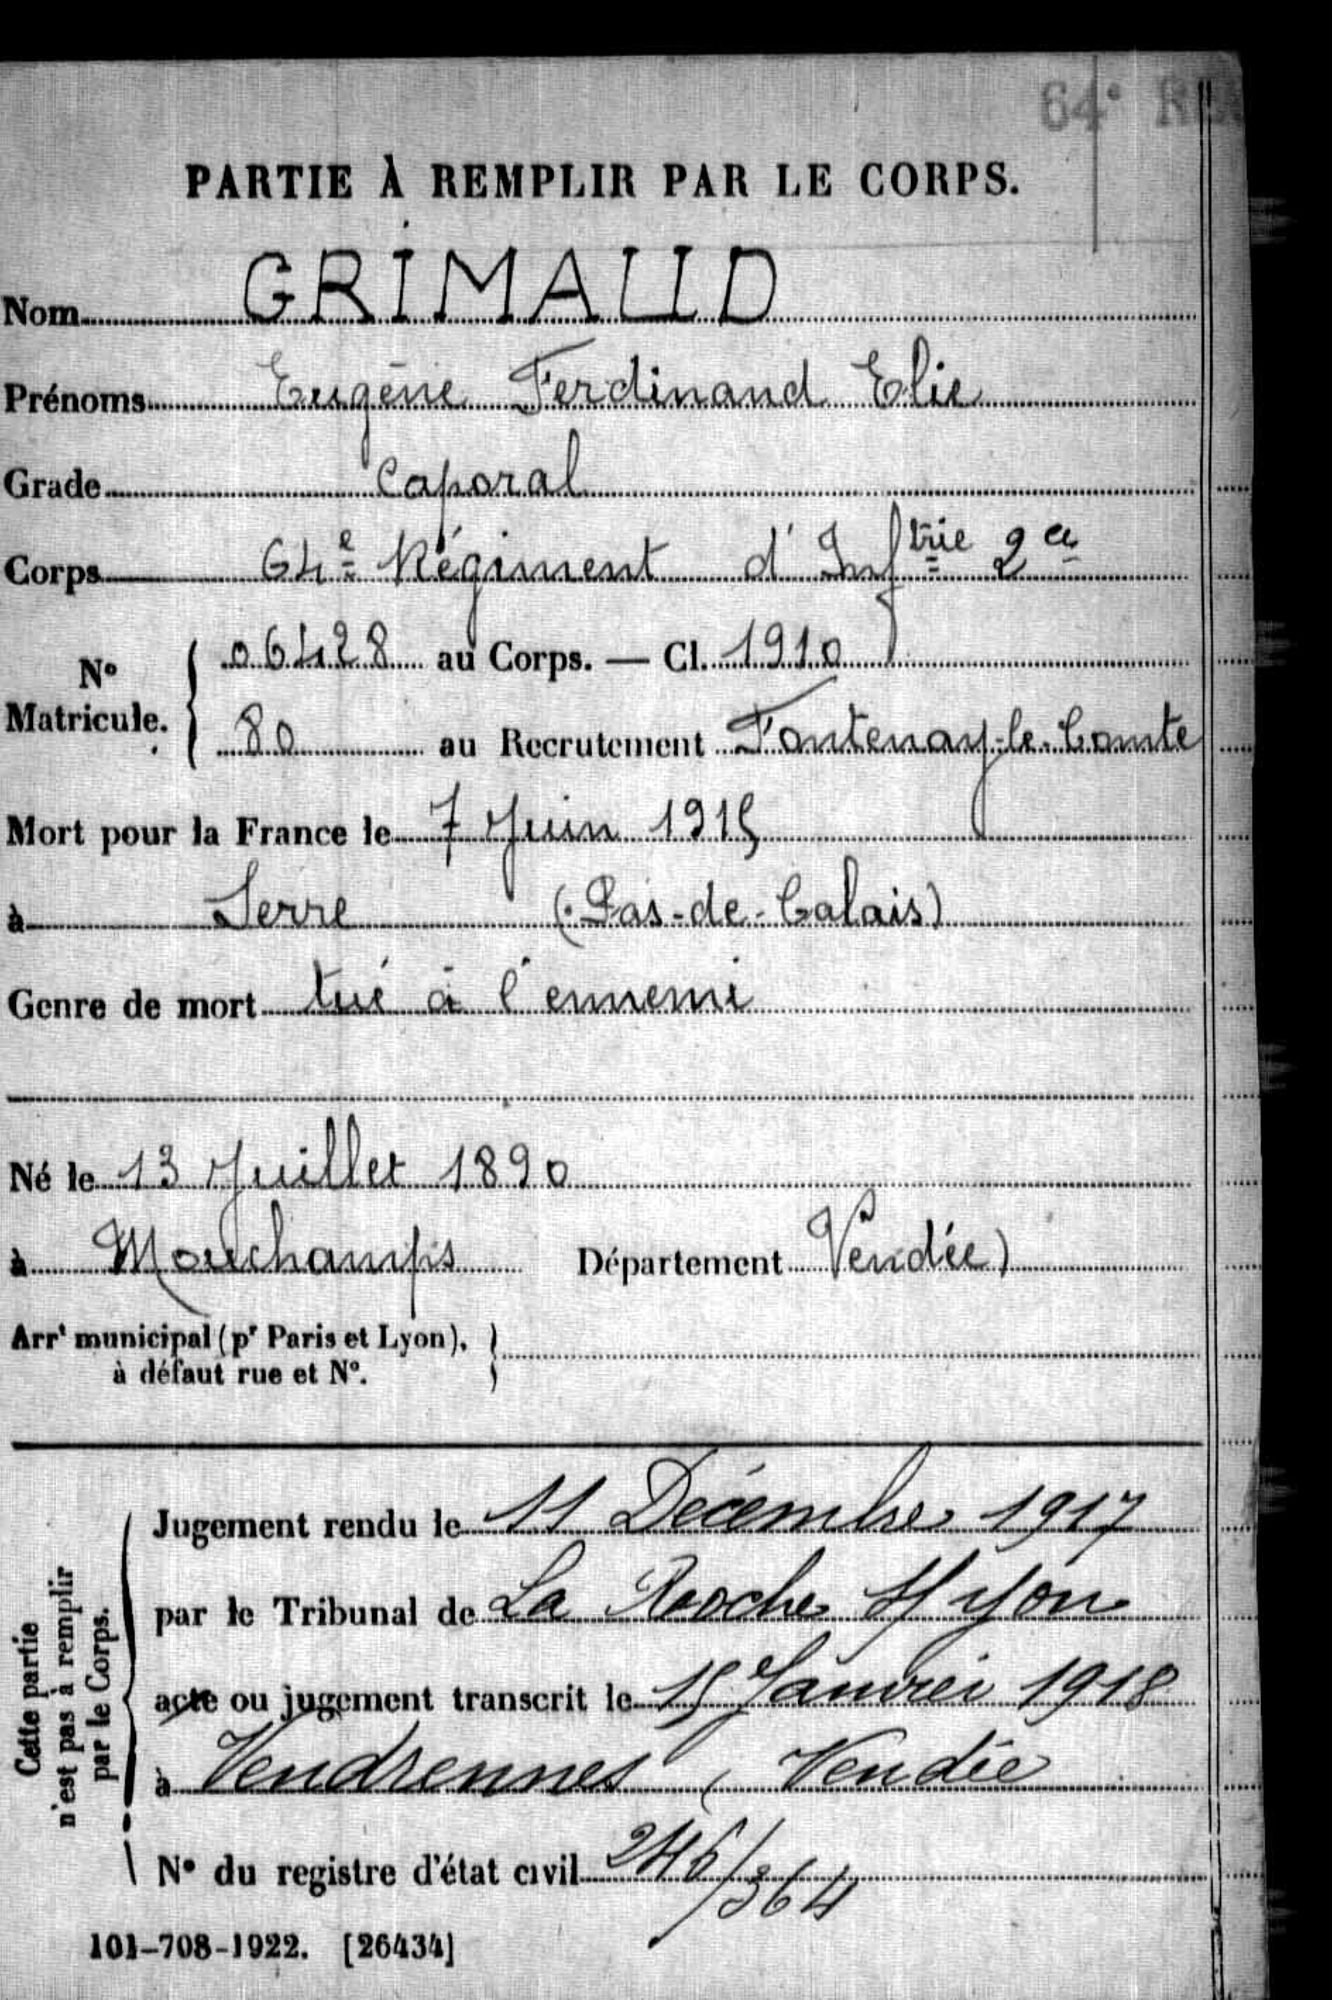 64e
PARTIE À REMPLIR PAR LE CORPS.
Nom GRIMAUD
Prénoms Eugène Ferdinand Elie
Grade Caporal
Corps 64e Régiment d'Inftrie 2 cie
No Matricule. 06428 au Corps. — Cl. 1910
80 au Recrutement Fontenay-le-Comte
Mort pour la France le 7 Juin 1915
à Serre (Pas-de-Calais)
Genre de mort tué à l'ennemi
Né le 13 Juillet 1890
à Mouchamps Département Vendée)
Arrt municipal (pr Paris et Lyon),
à défaut rue et No.
Cette partie
n'est pas à remplir
par le Corps.
Jugement rendu le 11 Décembre 1917
par le Tribunal de La Roche s/ Yon
acte ou jugement transcrit le 15 Janvier 1918
à Vendrennes, Vendée
No du registre d'état civil 246/364
101-708-1922. [26434]